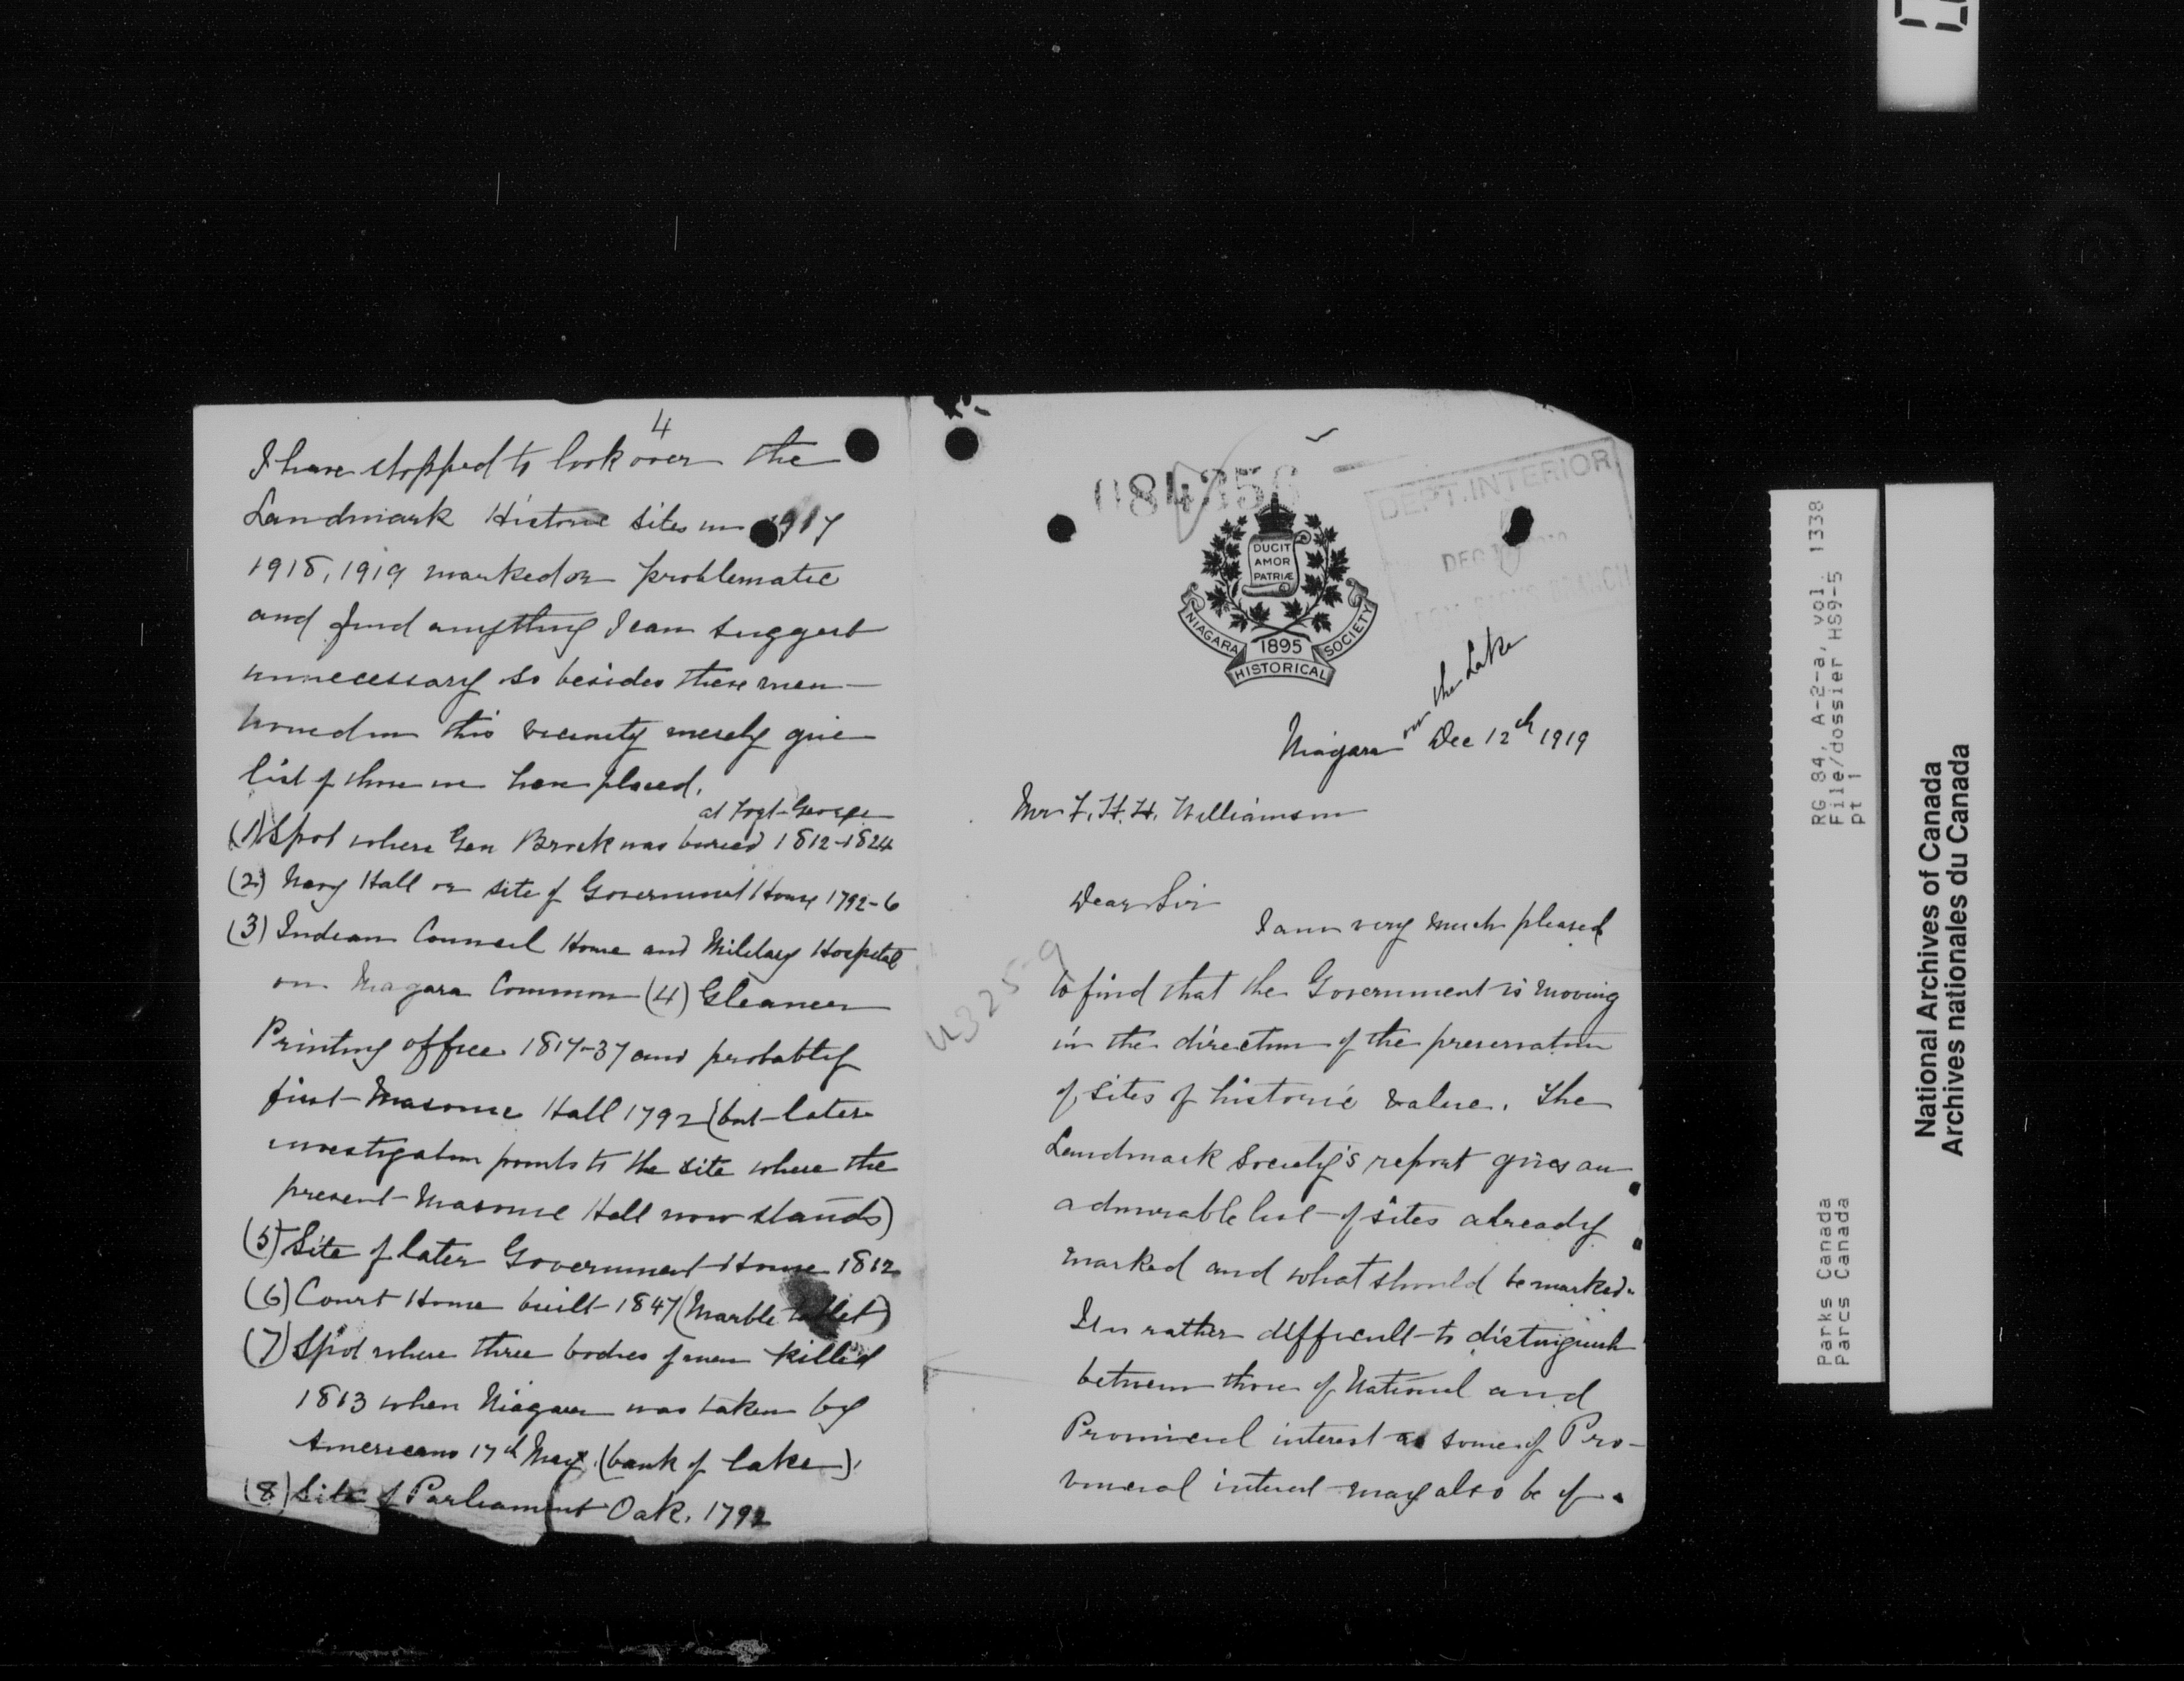 4
I have stopped to look over the
Landmark Historic sites in 1917
1918, 1919 marked or problematic
and find anything I can suggest
unnecessary so besides these men-
tioned in this vicinity merely give
list of those we have placed.
at Fort George
(1) Spot where Gen Brock was buried 1812-1824
(2) Navy Hall or site of Government House 1792-6
(3) Indian Council House and Military Hospital
on Niagara Common (4) Gleaner
Printing office 1817-37 and probably
first Masonic Hall 1792 (but later
investigation points to the site where the
present Masonic Hall now stands)
(5) Site of later Government House 1812
(6) Court House built 1847 (Marble tablet)
(7) Spot where three bodies of men killed
1813 when Niagara was taken by
Americans 17th May. (bank of lake).
(8) Site of Parliament Oak. 1792
DEPT. INTERIOR
DEC
DUCIT
AMOR
PATRIÆ
NIAGARA
1895
SOCIETY
HISTORICAL
Niagara on the Lake Dec 12th 1919
Mr F. H. H. Williamson
Dear Sir
I am very much pleased
to find that the Government is moving
in the direction of the preservation
of sites of historic value. The
Landmark Society's report gives an
admirable list of sites already
marked and what should be marked.
It is rather difficult to distinguish
between those of National and
Provincial interest as some of Pro-
vincial interest may also be of
U325-9
RG 84, A-2-a, vol. 1338
File/dossier HS9-5
pt 1
Parks Canada
Parcs Canada
National Archives of Canada
Archives nationales du Canada